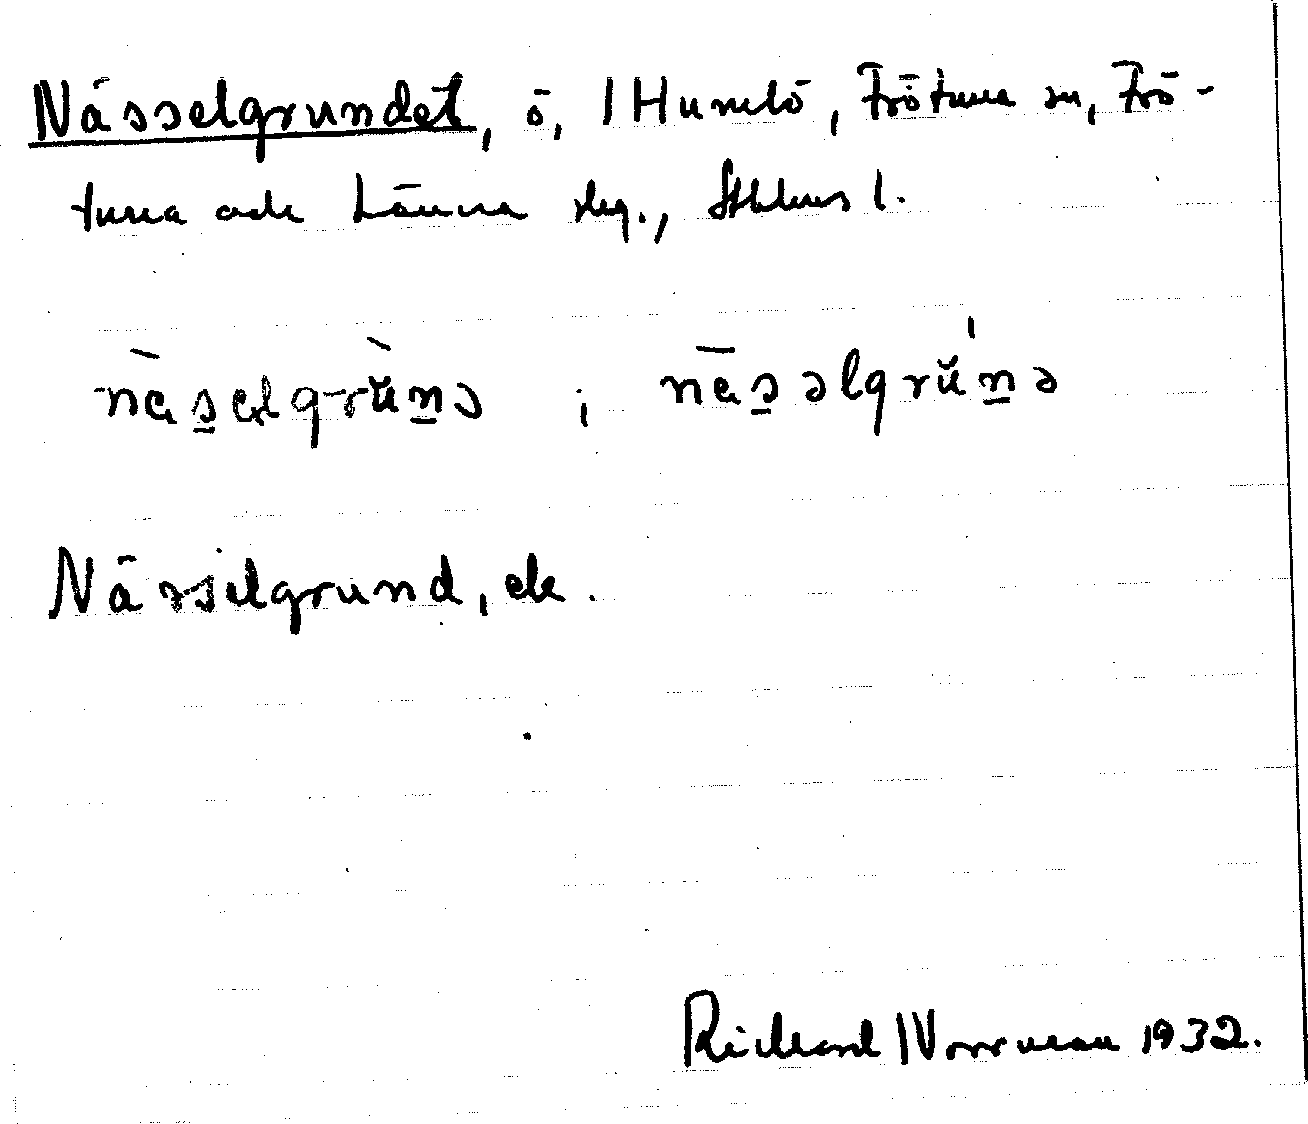 Nässelgrundet, ö, 1 Humlö, Frötuna sn, Frö-
tuna och Länna slg., Sthlms l.
nä̀s̲əlgrŭ̀n̲ə ; nǟs̲əlgrŭ́n̲ə
Nässelgrund, ek.
Rickard Norrman 1932.